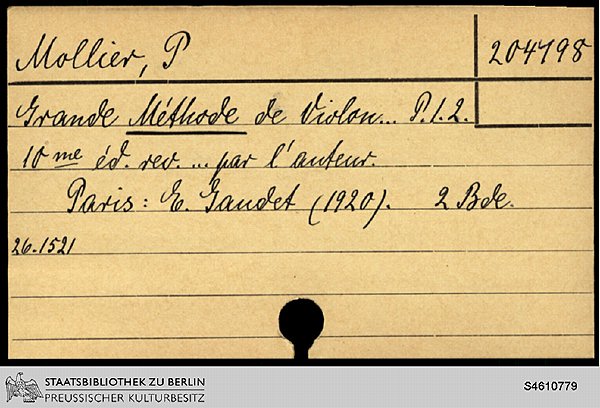 Mollier, P
204798
Grande Méthode de Violon... P.1.2.
10me éd. rev. ... par l'auteur.
Paris: E. Gaudet (1920). 2 Bde.
26.1521
STAATSBIBLIOTHEK ZU BERLIN
PREUSSISCHER KULTURBESITZ
S4610779